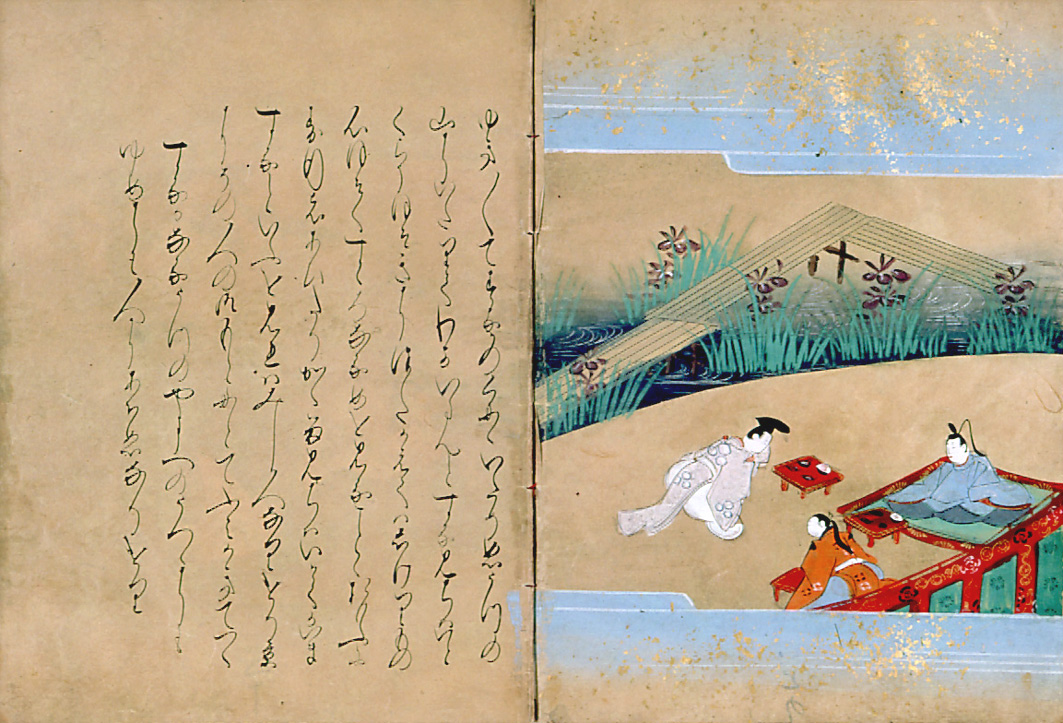 ゆき/\てするかのくににいたりぬうつの
山にいたりてわかいらんとする見ちはいと
くらうほそきにつたかえてはしけりもの
心ほそくすゝろなるめを見ることゝおもふに
す行者あひたりかゝる見ちはいかてかいま
するといふを見れはみし人なりけり京
にその人の御もとにとてふみかきてつく
するかなるうつのやまへのうつゝにも
ゆめにも人にあはぬなりけり